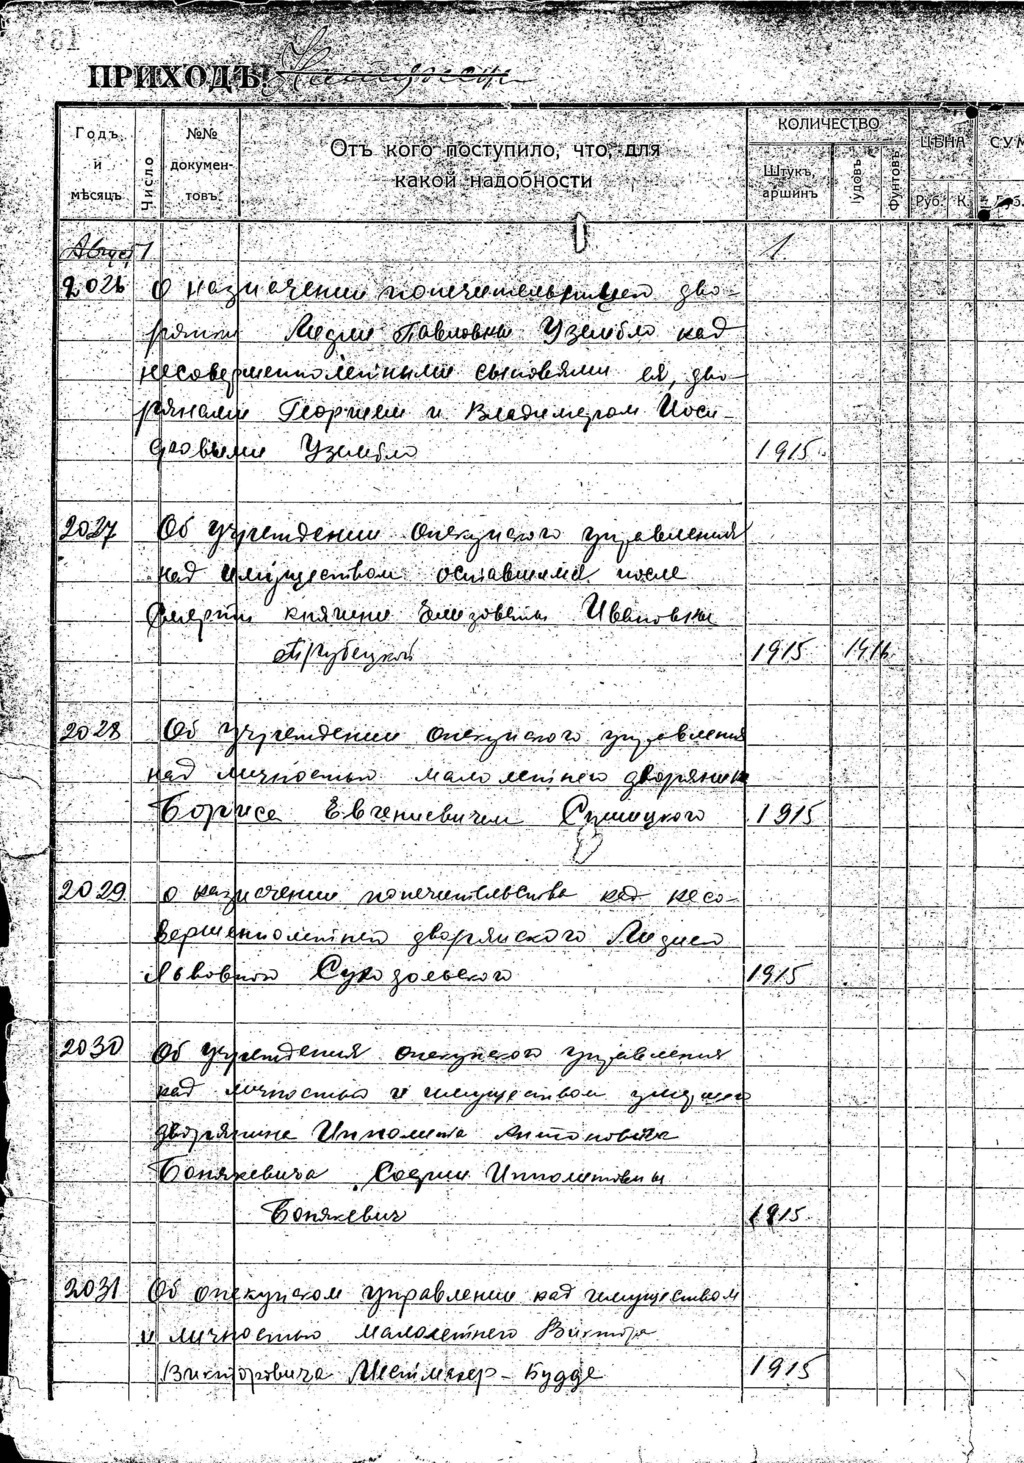 ПРИХОДЪ!
Годъ и мѣсяцъ
Число
№№ документовъ.
Отъ кого поступило, что, для
какой надобности
КОЛИЧЕСТВО
Штукъ, аршинъ
Пудовъ
Фунтовъ
ЦѢНА
Руб. К.
СУМ
Август 1 1
2026 О назначении попечительницей дво-
рянки Лидии Павловны Узембло над
несовершеннолетними сыновьями ея, дво-
рянами Георгием и Владимиром Иоси-
фовыми Узембло 1915
2027 Об учреждении опекунского управления
над имуществом оставшимся после
смерти княгини Елизоветы Ивановны
Трубецкой 1915 1916
2028 Об учреждении опекунского управления
над личностью малолетнего дворянина
Бориса Евгениевичем Сушицкого 1915
2029. О назначении попечительства над несо-
вершеннолетней дворянского Лидией
Львовной Суходольского 1915
2030 Об учреждения опекунского управления
над личностью и имуществом умершего
дворянина Ипполита Антоновича
Бонякевича Софии Ипполитовны
Бонякевич 1915
2031 Об опекунском управлении над имуществом
и личностью малолетнего Виктора
Викторовича Местмахер-Будде 1915